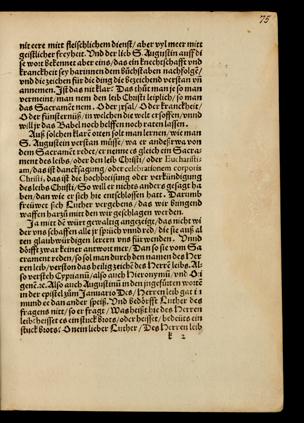 75
nit eere mitt fleischlichem dienst/ aber vyl meer mitt
geistlicher freyheit. Vnd der lieb S. Augustin auff di
se wort bekennet aber eins/ das ein knechtschafft vnd
kranckheit sey harinnen dem bůchstaben nachfolgē/
vnd die zeichen für die ding die bezeichend verstan vñ
annemen. Ist das nit klar: Das thůt man je so man
vermeint/ man nem den leib Christi leiplich/ so man
das Sacramēt nem. O der jrsal/ O der kranckheit/
O der finsternüß/ in welchen die welt ersoffen/ vnnd
will jr das Babel noch helffen noch raten lassen.
Auß solchen klarē orten solt man lernen/ wie man
S. Augustin verstan müsse/ wa er anderßwa von
dem Sacramēt redet/ er nenne es gleich ein Sacra-
ment des leibs/ oder den leib Christi/ oder Eucharisti
am/ das ist dancksagung/ oder celebrationem corporis
Christi, das ist die hochbreisung oder verkündigung
des leibs Christi/ So will er nichts anders gesagt ha
ben/ dan wie er sich hie entschlossen hatt. Darumb
freüwet sich Luther vergebens/ das wir hingend
waffen harzů mitt den wir geschlagen werden.
Ja mit dē würt gewaltig angezeigt/ das nicht wi
der vns schaffen alle jr sprüch vnnd red/ die sie auß al
ten glaubwürdigen lerern vns fürwenden. Vnnd
dörfft zwar keiner antwort mer/ Dan so sie vom Sa
crament reden/ so sol man durch den namen des Her
ren leib/ verston das heilig zeichē des Herrē leibs. Al
so versteh Cyprianū/ also auch Hieronymū, vnd Ori
genē ꝛc. Also auch Augustinū in den
in der epistel zům Januario Des/ Herren leib gat ti
mund ee dan ander speiß. Vnd bedörfft Luther des
fragens nitt/ so er fragt/ Was heißt hie des Herren
leib: heisset es ein stuck brots/ oder heisset/ bedeüts ein
stuck brots: O nein lieber Luther/ Des Herren leib
k 2